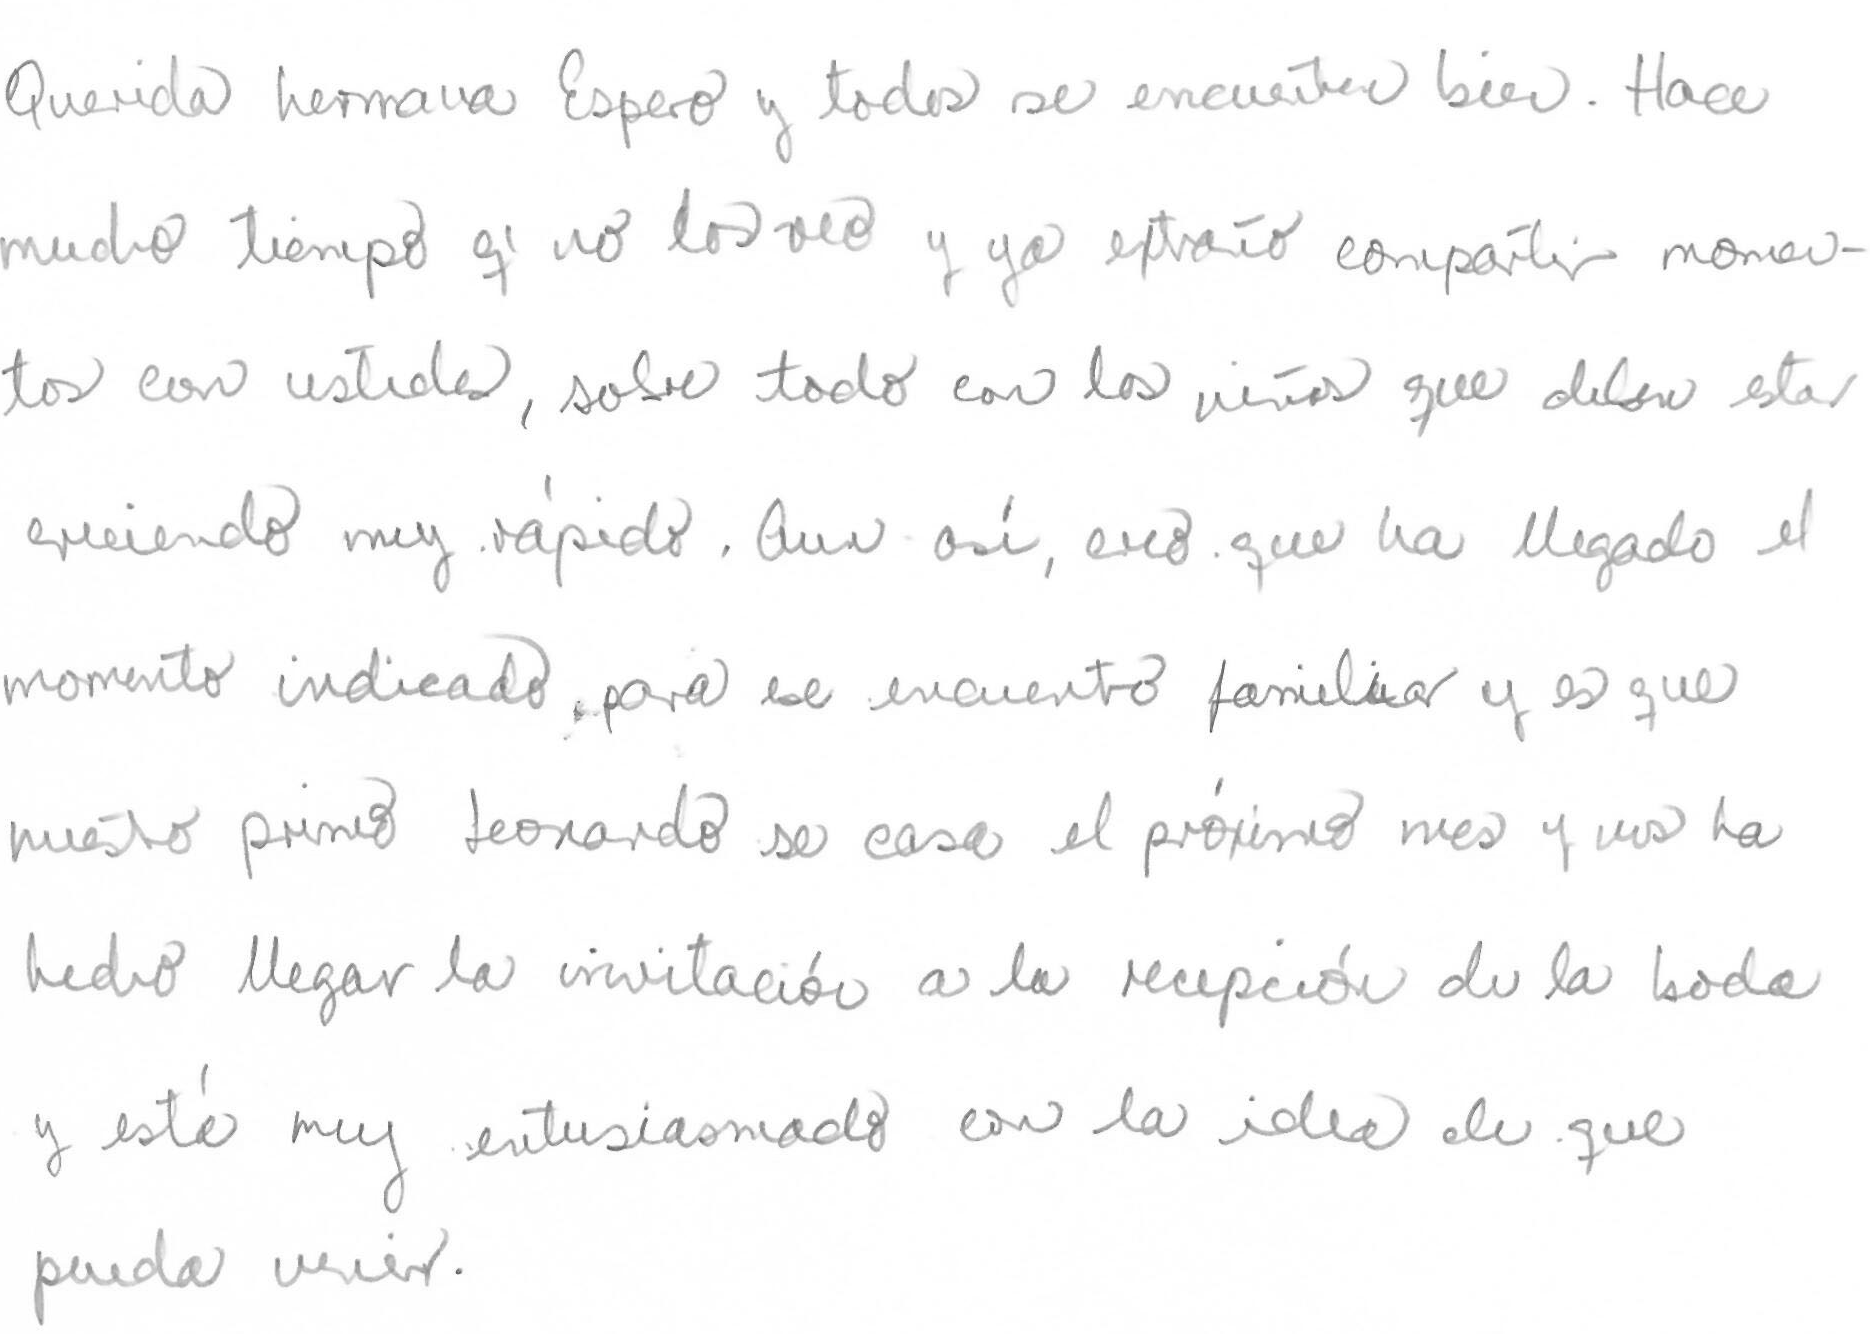 Querida hermana Espero y todos se encuentren bien. Hace
mucho tiempo q' no los veo y ya extraño compartir momen-
tos con ustedes, sobre todo con los niños que deben estar
creciendo muy rápido. Aun así, creo que ha llegado el
momento indicado, para ese encuentro familiar y es que
nuestro primo Leonardo se casa el próximo mes y nos ha
hecho llegar la invitación a la recepción de la boda
y está muy entusiasmado con la idea de que
pueda venir.